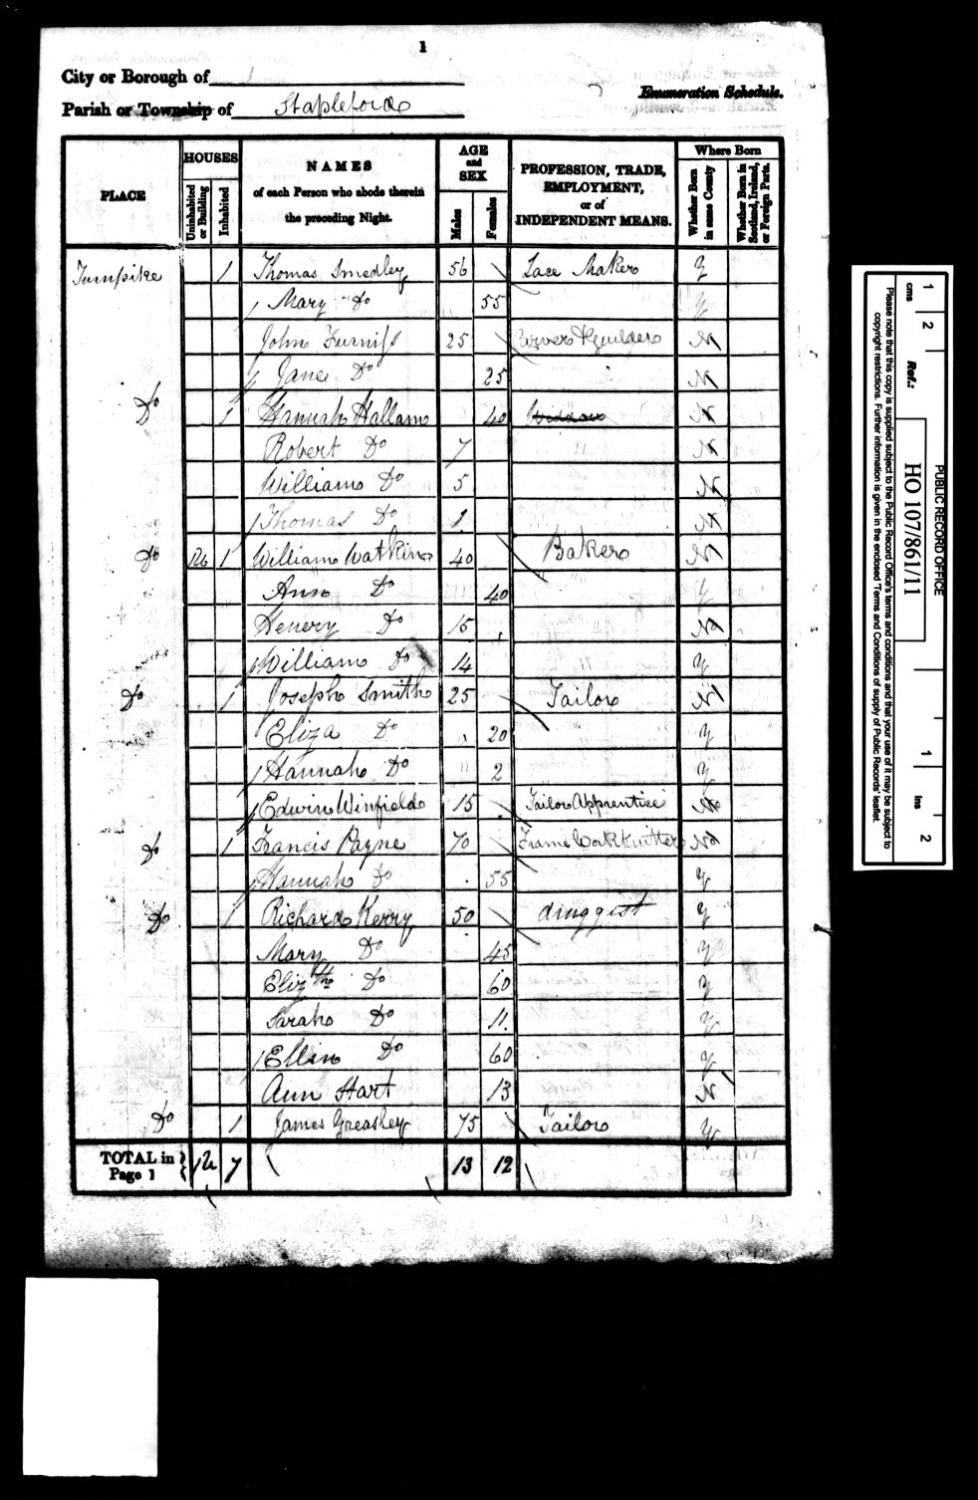 1
City or Borough of
Parish or Township of Stapleford
Enumeration Schedule.
PLACE
HOUSES
Uninhabited or Building
Inhabited
NAMES
of each Person who abode therein
the preceding Night.
AGE
and
SEX
Males
Females
PROFESSION, TRADE,
EMPLOYMENT,
or of
INDEPENDENT MEANS.
Where Born
Whether Born in same County
Whether Born in Scotland, Ireland, or Foreign Parts.
Turnpike 1 Thomas Smedley 56 Lace Maker Y
Mary Do 55 Y
John Furniss 25 N
Jane Do 25 N
Do 1 Hannah Hallam 40 Widdow N
Robert Do 7 N
William Do 5 N
Thomas Do 1 N
Do 1 William Watkins 40 Baker N
Ann Do 40 Y
Henery Do 15 No
William Do 14 Y
Do 1 Joseph Smith 25 Tailor N
Eliza Do 20 Y
Hannah Do 2 Y
Edwin Winfield 15 Tailor Apprentice
Do 1 Francis Payne 70 Frame Work Knitter No
Hannah Do 55 Y
Do 1 Richard Kerry 50 druggist Y
Mary Do 45 Y
Elizth Do 60 Y
Sarah Do 11 Y
Ellin Do 60 Y
Ann Hart 13 N
Do 1 James Greasley 75 Tailor Y
TOTAL in Page 1 7 13 12
cms 1 2 1 Ins 2
Ref.: HO 107/861/11
PUBLIC RECORD OFFICE
Please note that this copy is supplied subject to the Public Record Office's terms and conditions and that your use of it may be subject to
copyright restrictions. Further information is given in the enclosed 'Terms and Conditions of supply of Public Records' leaflet.